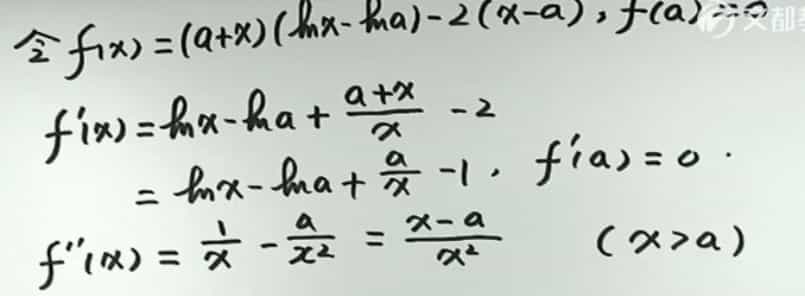 令 f(x) = (a+x)(lnx-lna)-2(x-a), f(a)=0
f'(x) = lnx-lna + \frac{a+x}{x} - 2
= lnx-lna + \frac{a}{x} - 1, f'(a) = 0.
f''(x) = \frac{1}{x} - \frac{a}{x^2} = \frac{x-a}{x^2} (x>a)